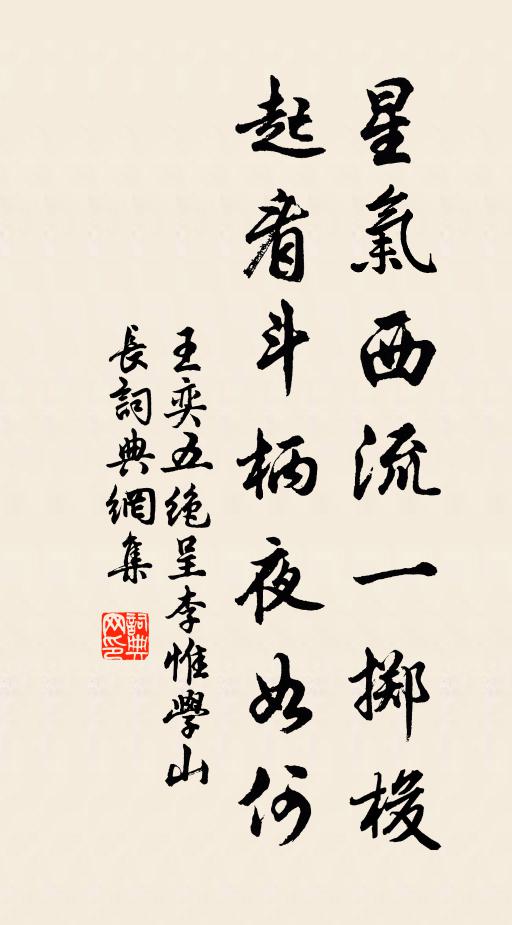 星氣西流一擲梭
起看斗柄夜如何
王奕五絕呈李惟學山
長詞典網集
詞典网印